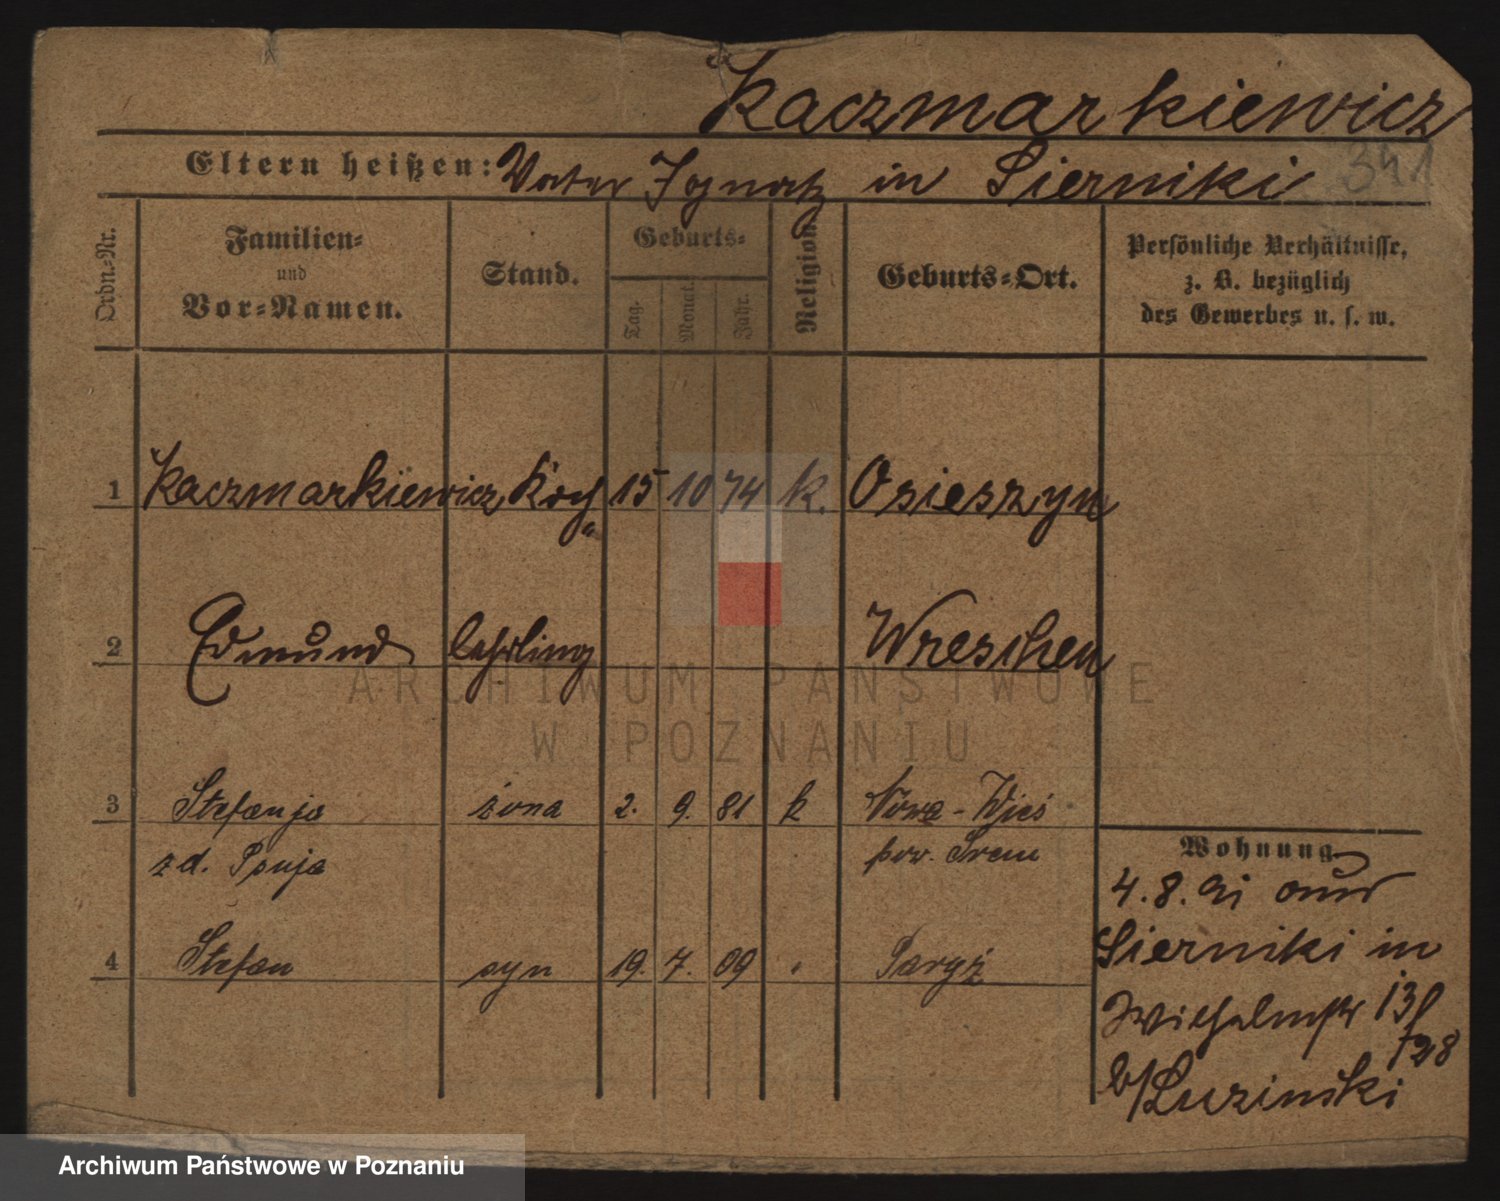 Kaczmarkiewicz
341
Eltern heißen: Vater Ignatz in Sierniki
Ordn=Nr.
Familien=
und
Vor=Namen.
Stand.
Geburts=
Tag.
Monat.
Jahr.
Religion
Geburts=Ort.
Persönliche Verhältnisse,
z. B. bezüglich
des Gewerbes u. s. w.
1 Kaczmarkiewicz 15 10 74 k. Osieszyn
2 Edmund lehrling Wreschen
3 Stefanja żona 2. 9. 81 k Nowa-Wieś
z d. Psuja pow. Śrem
4 Stefan syn 19. 7. 09 "
Wohnung
4.8.91 aus
Sierniki in
Wilhelmstr 13
b/Luzinski
ARCHIWUM PAŃSTWOWE
W POZNANIU
Archiwum Państwowe w Poznaniu